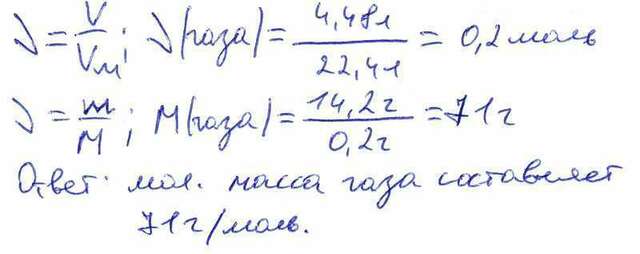 ν = V/Vм; ν(газа) = 4,48л/22,4л = 0,2моль
ν = m/M; M(газа) = 14,2г/0,2г = 71г
Ответ: мол. масса газа составляет
71г/моль.